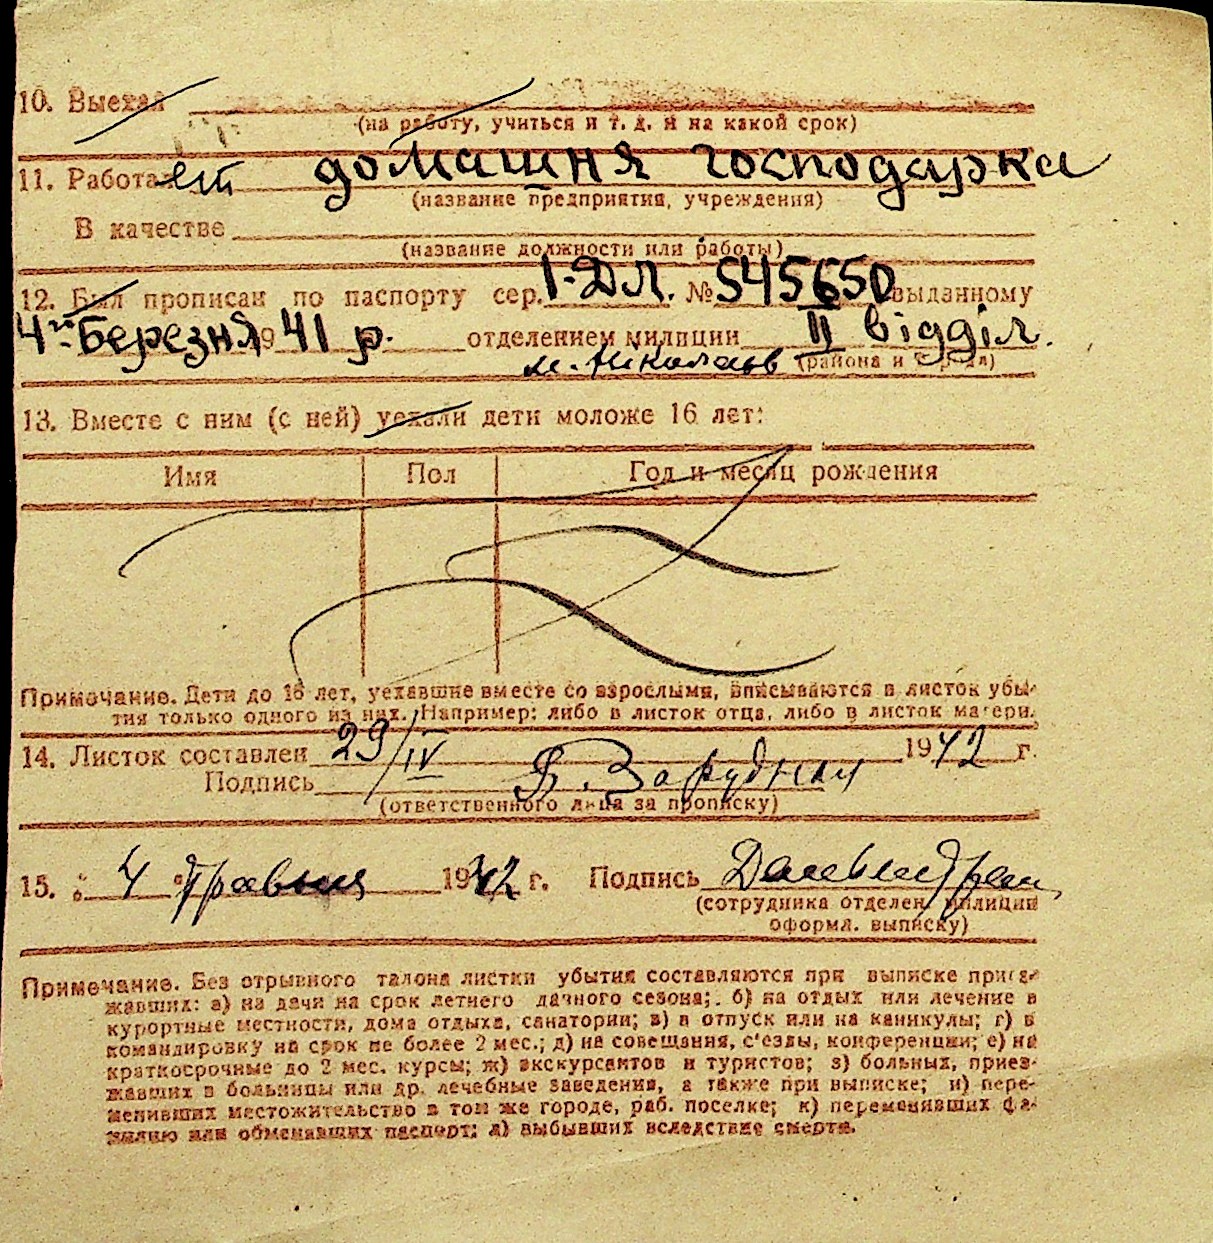 10. Выехал
(на работу, учиться и т. д. и на какой срок)
11. Работает домашня господарка
(название предприятия, учреждения)
В качестве
(название должности или работы)
12. Был прописан по паспорту сер. І-ДЛ. № 545650 выданному
4го Березня 1941 р. отделением милиции ІІ відділ.
м. Николаїв (района и города)
13. Вместе с ним (с ней) уехали дети моложе 16 лет:
Имя Пол Год и месяц рождения
Примечание. Дети до 16 лет, уехавшие вместе со взрослыми, вписываются в листок убы-
тия только одного из них. Например: либо в листок отца, либо в листок матери.
14. Листок составлен 29/IV 1942 г.
Подпись
(ответственного лица за прописку)
15. „ 4 " Травня 1942 г. Подпись
(сотрудника отделен. милиции
оформл. выписку)
Примечание. Без отрывного талона листки убытия составляются при выписке приез-
жавших: а) на дачи на срок летнего дачного сезона; б) на отдых или лечение в
курортные местности, дома отдыха, санатории; в) в отпуск или на каникулы; г) в
командировку на срок не более 2 мес.; д) на совещания, с'езды, конференции; е) на
краткосрочные до 2 мес. курсы; ж) экскурсантов и туристов; з) больных, приез-
жавших в больницы или др. лечебные заведения, а также при выписке; и) пере-
менивших местожительство в том же городе, раб. поселке; к) переменивших фа-
милию или обменявших паспорт; л) выбывших вследствие смерти.